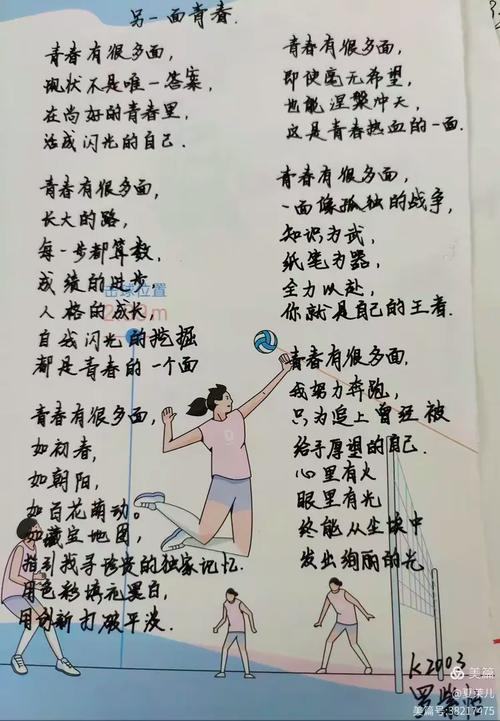 另一面青春.
青春有很多面,
现状不是唯一答案,
在尚好的青春里,
活成闪光的自己.
青春有很多面,
长大的路,
每一步都算数,
成绩的进步,
人格的成长,
自我闪光的挖掘
都是青春的一个面
青春有很多面,
如初春,
如朝阳,
如百花萌动。
如藏宝地图,
指引找寻珍贵的独家记忆.
用色彩填充黑白,
用创新打破平淡.
青春有很多面,
即使毫无希望,
也能涅槃冲天,
这是青春热血的一面.
青春有很多面,
一面像孤独的战争,
知识为武,
纸笔为器,
全力以赴,
你就是自己的王者.
青春有很多面,
我努力奔跑,
只为追上曾经被
给予厚望的自己.
心里有火
眼里有光
终能从尘埃中
发出绚丽的光
击球位置
K2003
美篇
美篇号:38217475